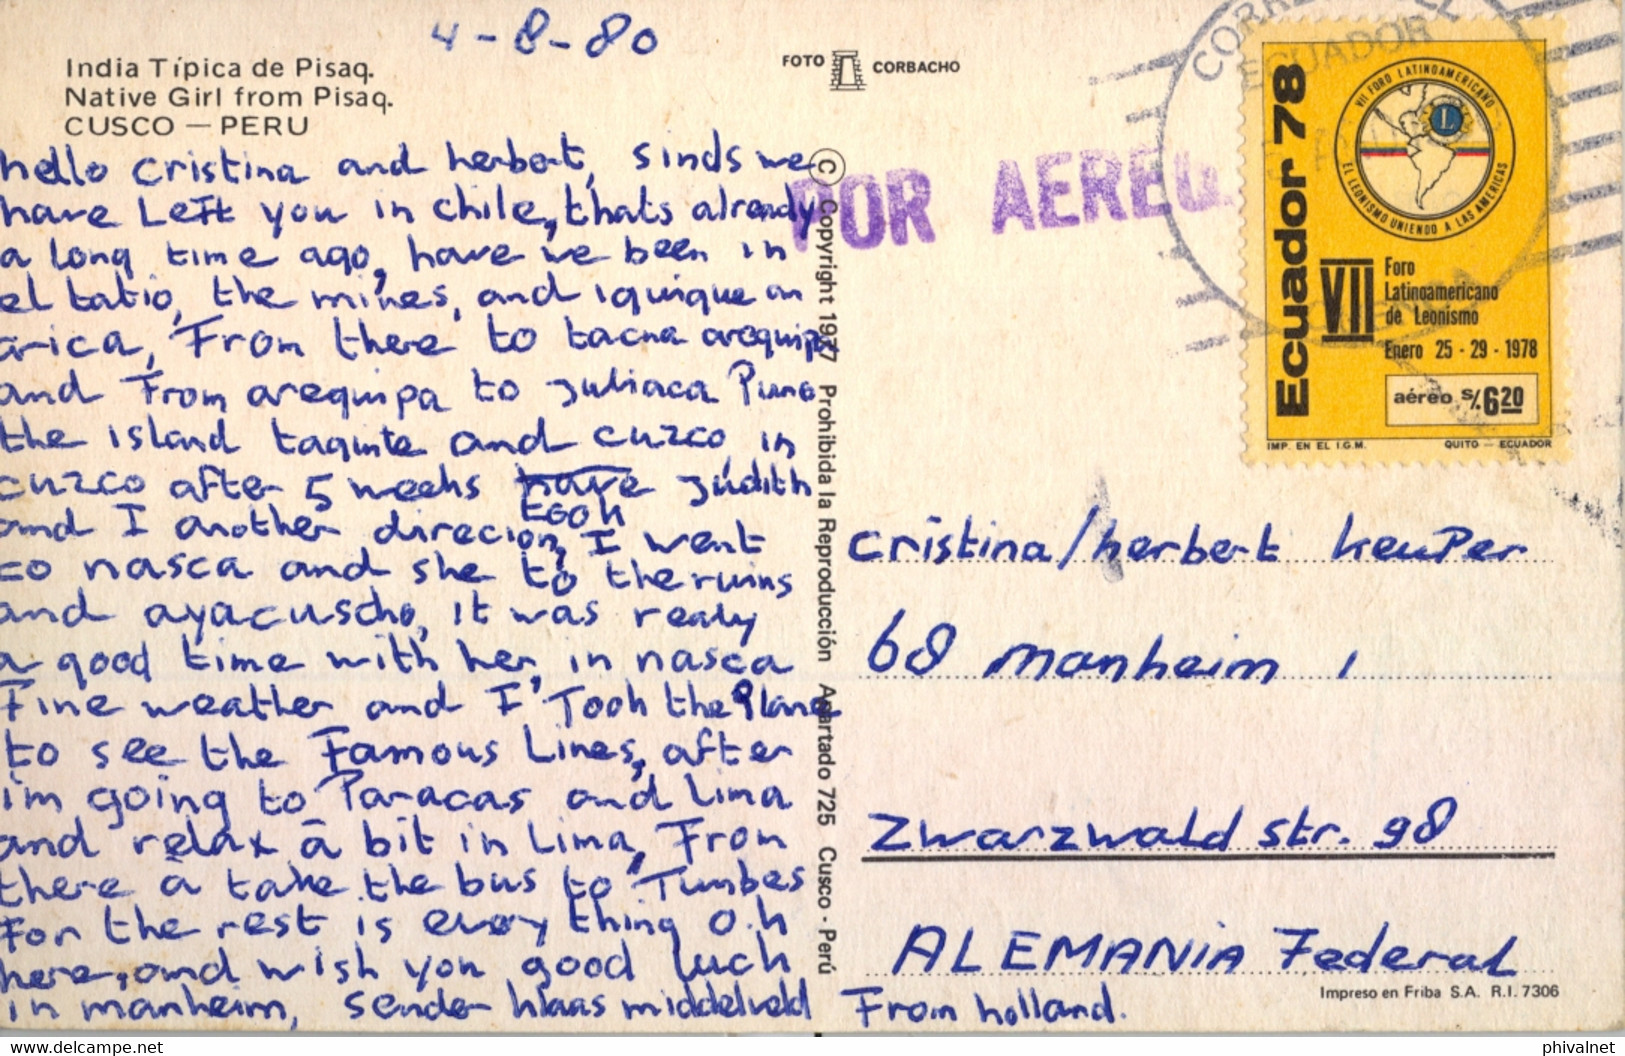 4-8-80
India Típica de Pisaq.
Native Girl from Pisaq.
CUSCO — PERU
FOTO CORBACHO
hello Cristina and herbert, sinds we
have Left you in chile, thats already
a long time ago, have we been in
el tatio, the mines, and iquique an
arica, From there to tacna arequipa
and From arequipa to Juliaca Puno
the island taquile and cuzco, in
cuzco after 5 weeks have Judith
and I another direcion, I went
to nasca and she to the ruins
and ayacuscho, it was realy
a good time with her, in nasca
Fine weather and I Tooh the Plane
to see the Famous Lines, after
i'm going to Paracas and Lima
and relax a bit in Lima, From
there a take the bus to Tumbes
For the rest is every thing o.h
here, and wish you good luch
in manheim, sender klaas middelveld From holland.
© Copyright 1977 Prohibida la Reproducción Apartado 725 Cusco - Perú
POR AEREO
CORREO
ECUADOR
Ecuador 78
VII FORO LATINOAMERICANO
EL LEONISMO UNIENDO A LAS AMERICAS
L
VII
Foro
Latinoamericano
de Leonismo
Enero 25 - 29 - 1978
aéreo S/. 6.20
IMP. EN EL I.G.M. QUITO — ECUADOR
Cristina/herbert keuper
68 manheim 1
Zwarzwald str. 98
ALEMANIA Federal
Impreso en Friba S.A. R.I. 7306
delcampe.net
phivalnet